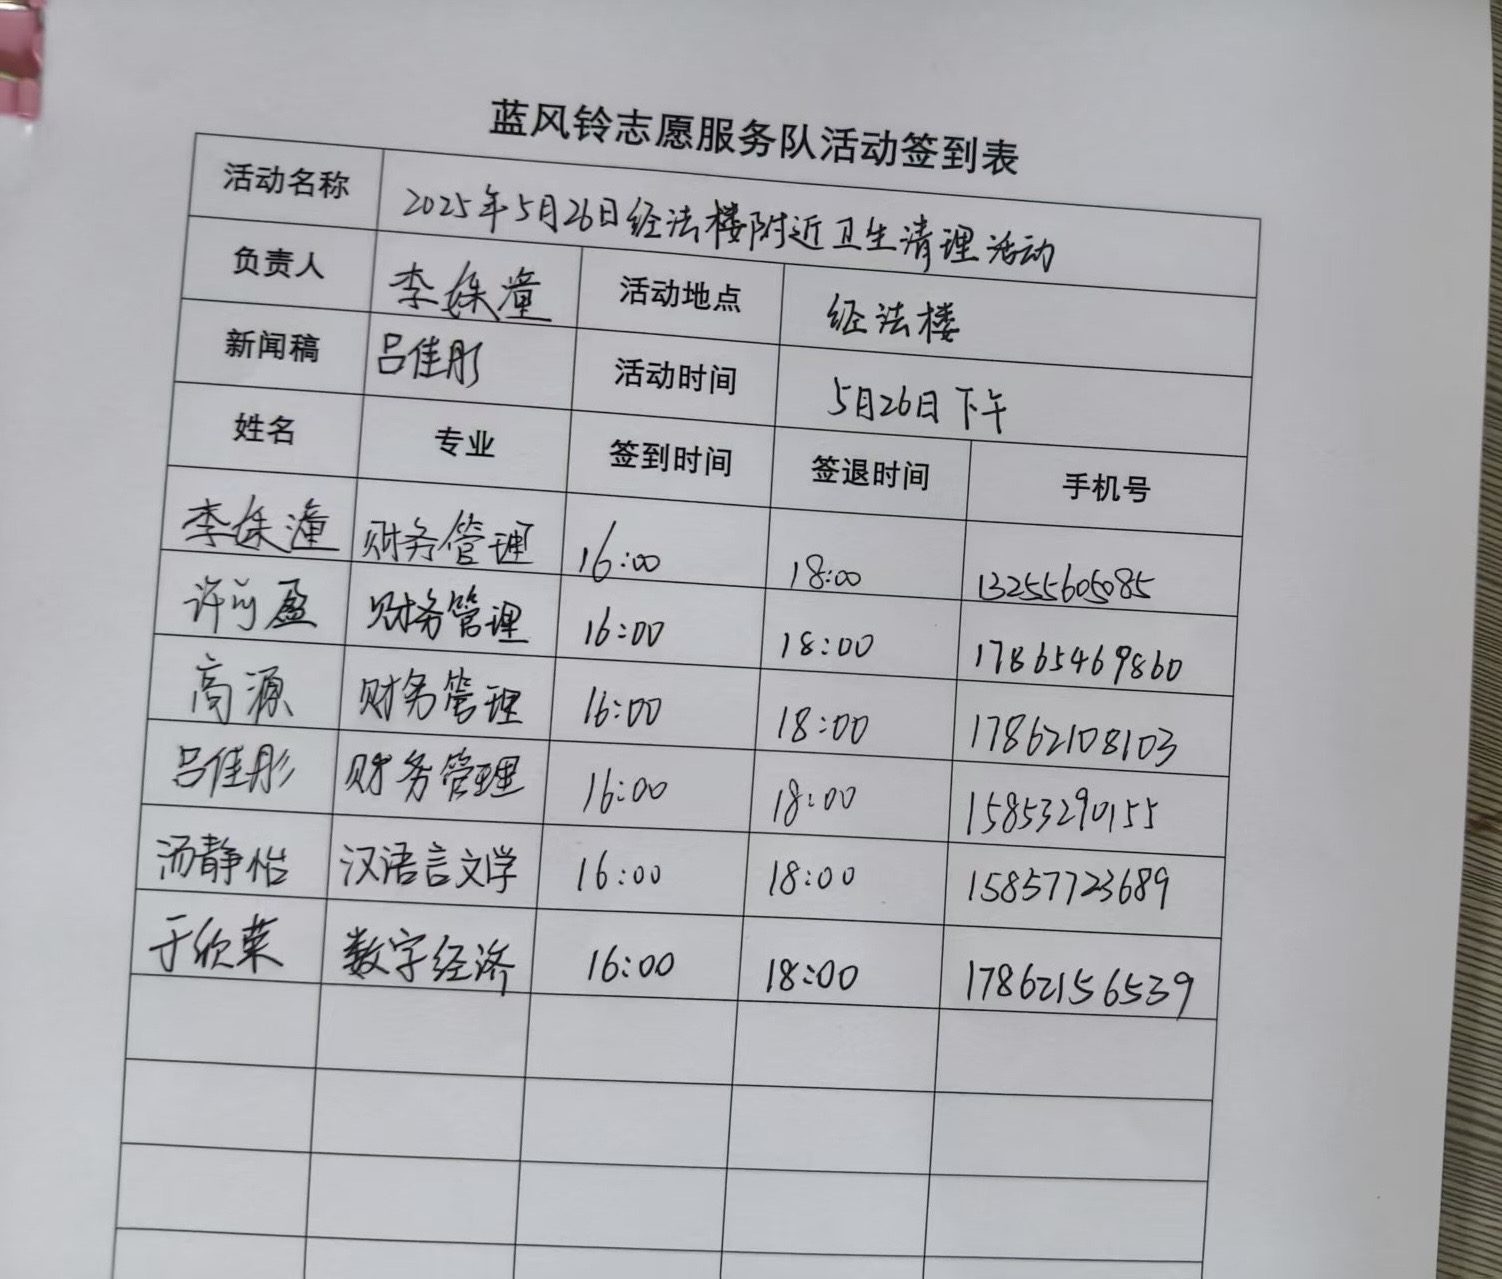 蓝风铃志愿服务队活动签到表
活动名称 2025年5月26日经法楼附近卫生清理活动
负责人 李姝潼 活动地点 经法楼
新闻稿 吕佳彤 活动时间 5月26日下午
姓名 专业 签到时间 签退时间 手机号
李姝潼 财务管理 16:00 18:00 13255605085
许可盈 财务管理 16:00 18:00 17865469860
高源 财务管理 16:00 18:00 17862108103
吕佳彤 财务管理 16:00 18:00 15853290155
汤静怡 汉语言文学 16:00 18:00 15857723689
于欣荣 数字经济 16:00 18:00 17862156539